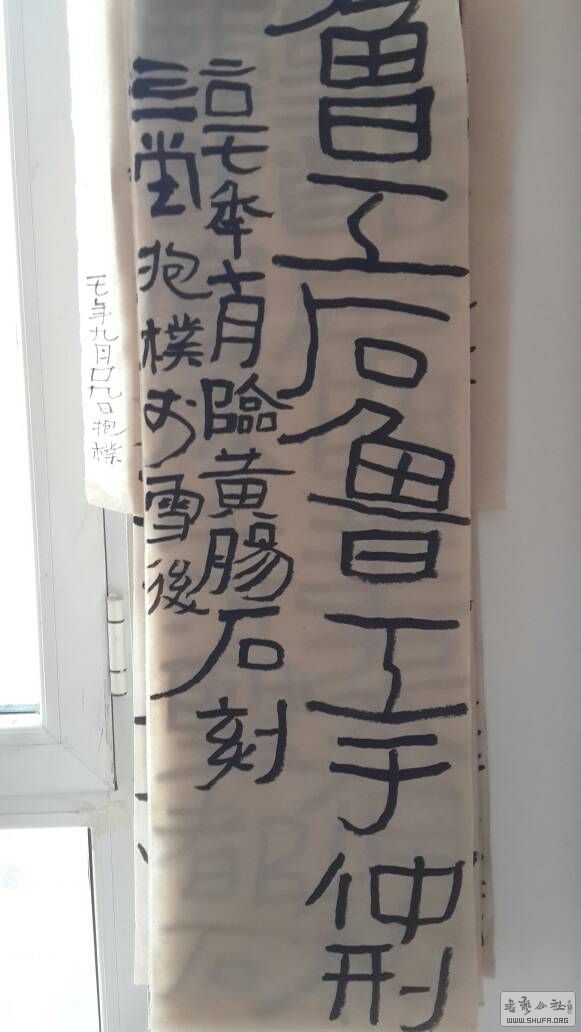 魯工石魯工于仲刑
二〇一七年十月臨黄腸石刻
三堂抱樸於雪後
一七年九月廿九日抱樸
书艺公社
WWW.SHUFA.ORG